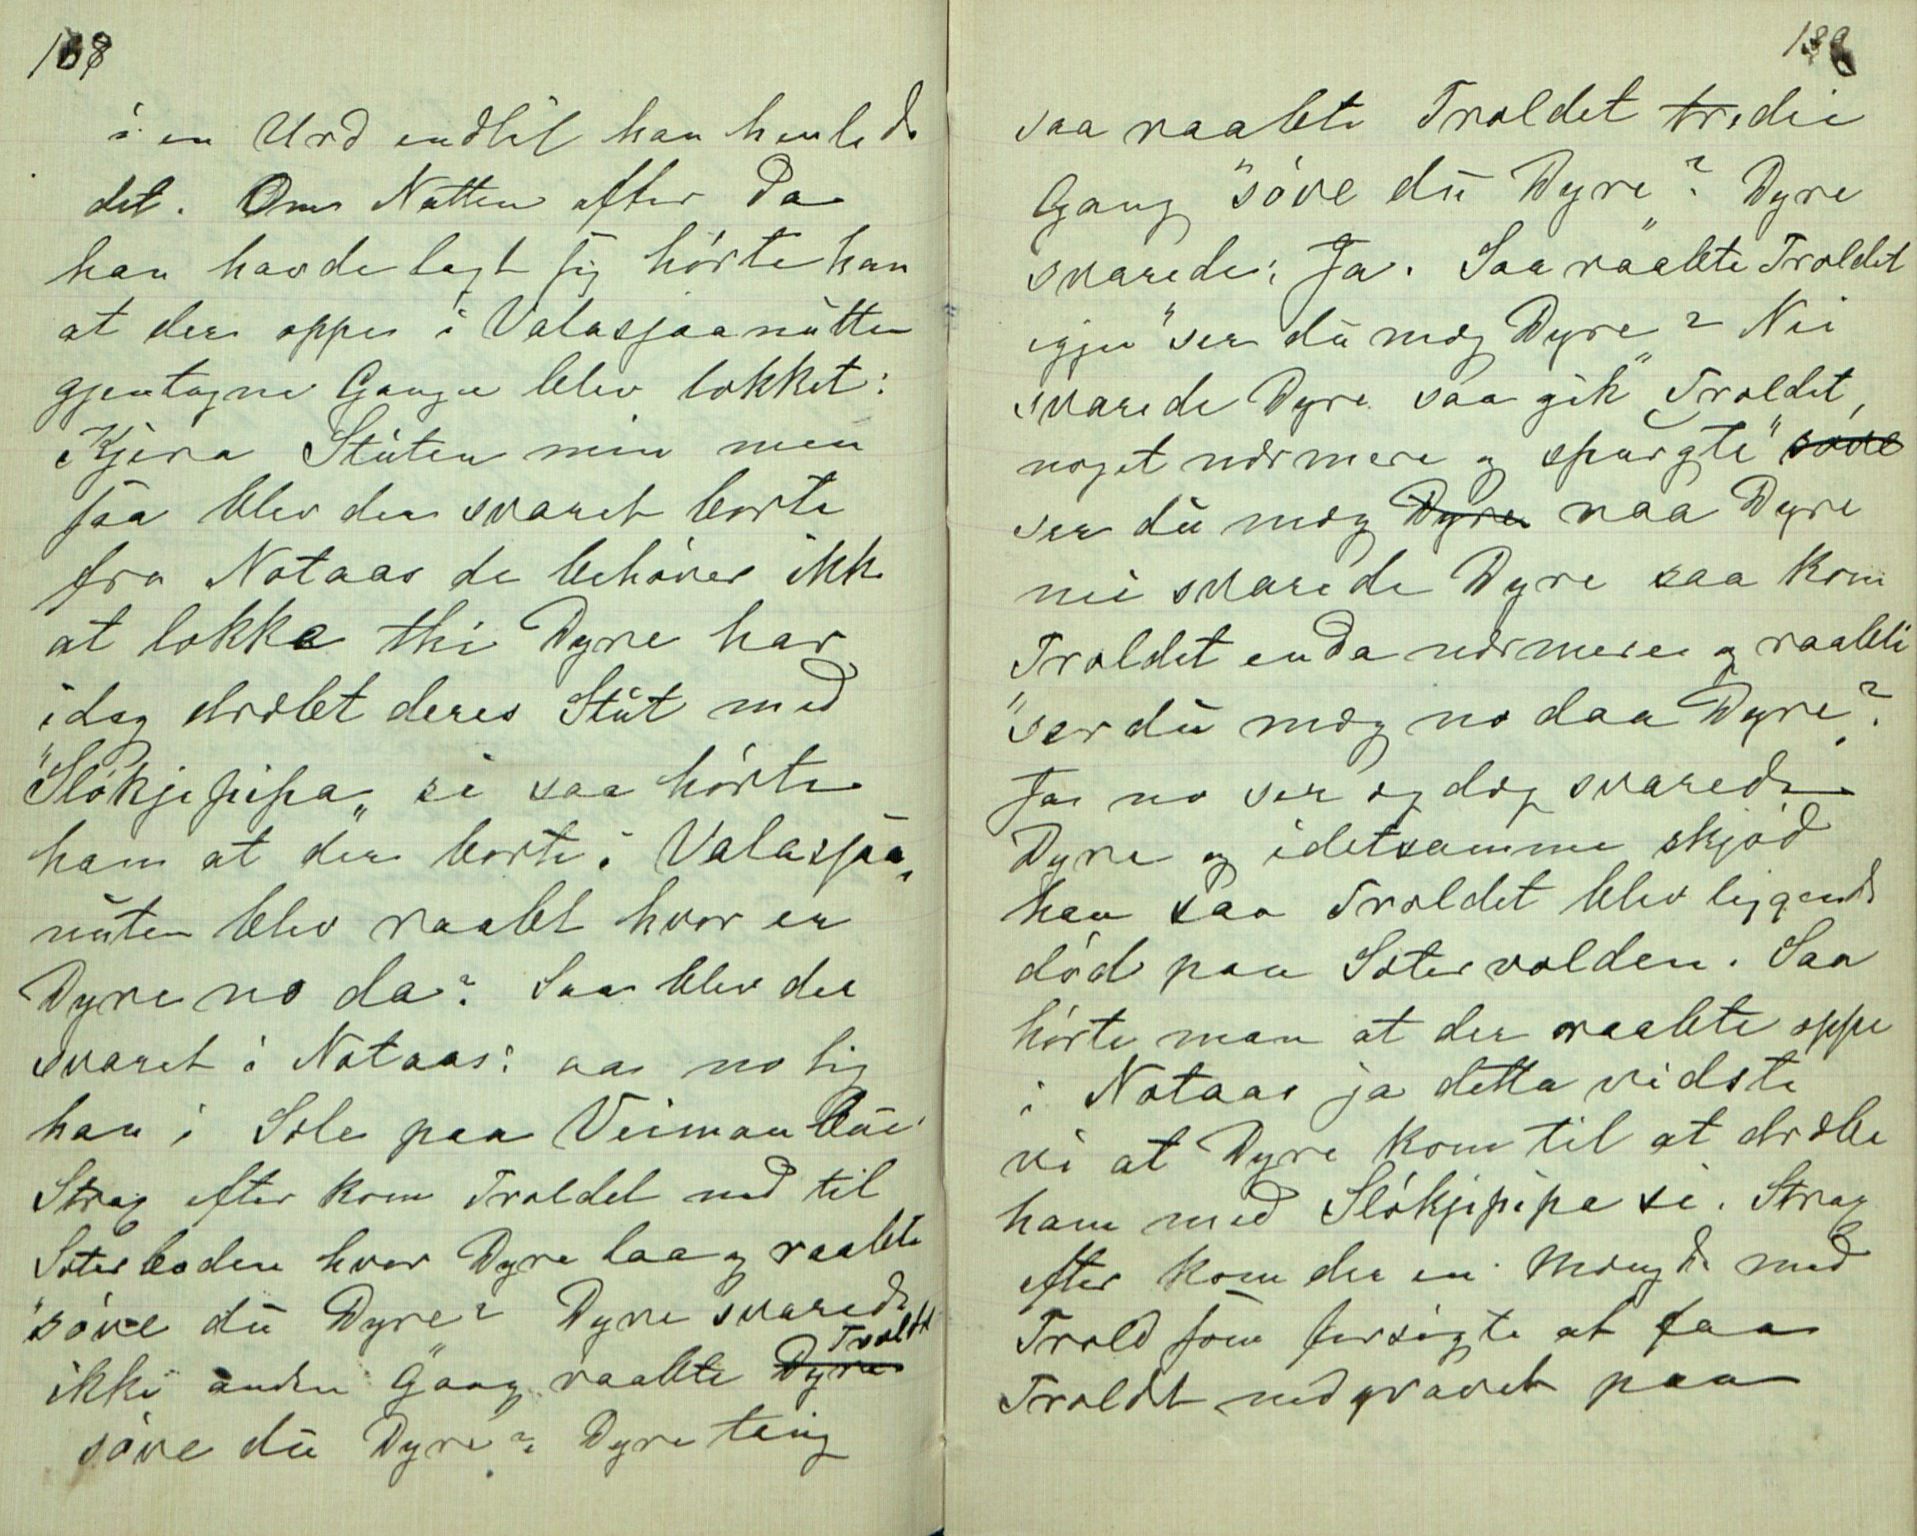 i en Urd endlil han henlede
det. Om Natten efter da
han havde lagt sig hórte han
at der oppe i Valasjaanutten
gjentagne Gange blev lokket:
Kjera Stuten min men
saa blev der svaret borte
fra Notaas de behóver ikke
at lokke thi Dyre har
idag dræbt deres Stut med
"Slókjepipa„ si saa hórte
ham at der borte i Valasjaa„
nuten blev raabt hvor er
Dyre no da? Saa blev det
svaret i Notaas: aa no lig
han i Sæle paa Veimanbui
Strax efter kom Troldet ned til
Sæterboden hvor Dyre laa og raabte
"sóve du Dyre? Dyre svarede
ikke anden Gang raabte Dyre Troldet
sóve du Dyre"? Dyre taug
saa raabte Troldet tredie
Gang "sóve du Dyre"? Dyre
svarede: Ja. Saa raabte Troldet
igjen "ser du mæg Dyre"? Nei
svarede Dyre saa gik Troldet,
noget nærmere og spurgte" sove
ser du mæg Dyre naa Dyre
nei svarede Dyre saa kom
Troldet enda nærmere og raabte
"ser du mæg no daa Dyre"?
Ja no ser æg dæg svarede
Dyre og idetsamme skjód
han saa Troldet blev liggende
dód paa Sætervolden. Saa
hórte man at der raabte oppe
i Notaas ja detta vidste
vi at Dyre kom til at dræbe
ham med Slókjepipa si. Strax
efter kom der en Mængde med
Trold som forsøgte at faa
Troldet nedgravet paa